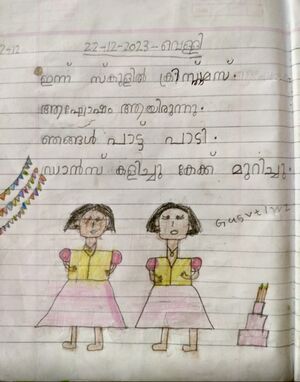 22-12-2023-വെള്ളി
ഇന്ന് സ്കൂളിൽ ക്രിസ്മസ്.
ആഘോഷം ആയിരുന്നു.
ഞങ്ങൾ പാട്ട് പാടി.
ഡാൻസ് കളിച്ചു കേക്ക് മുറിച്ചു.